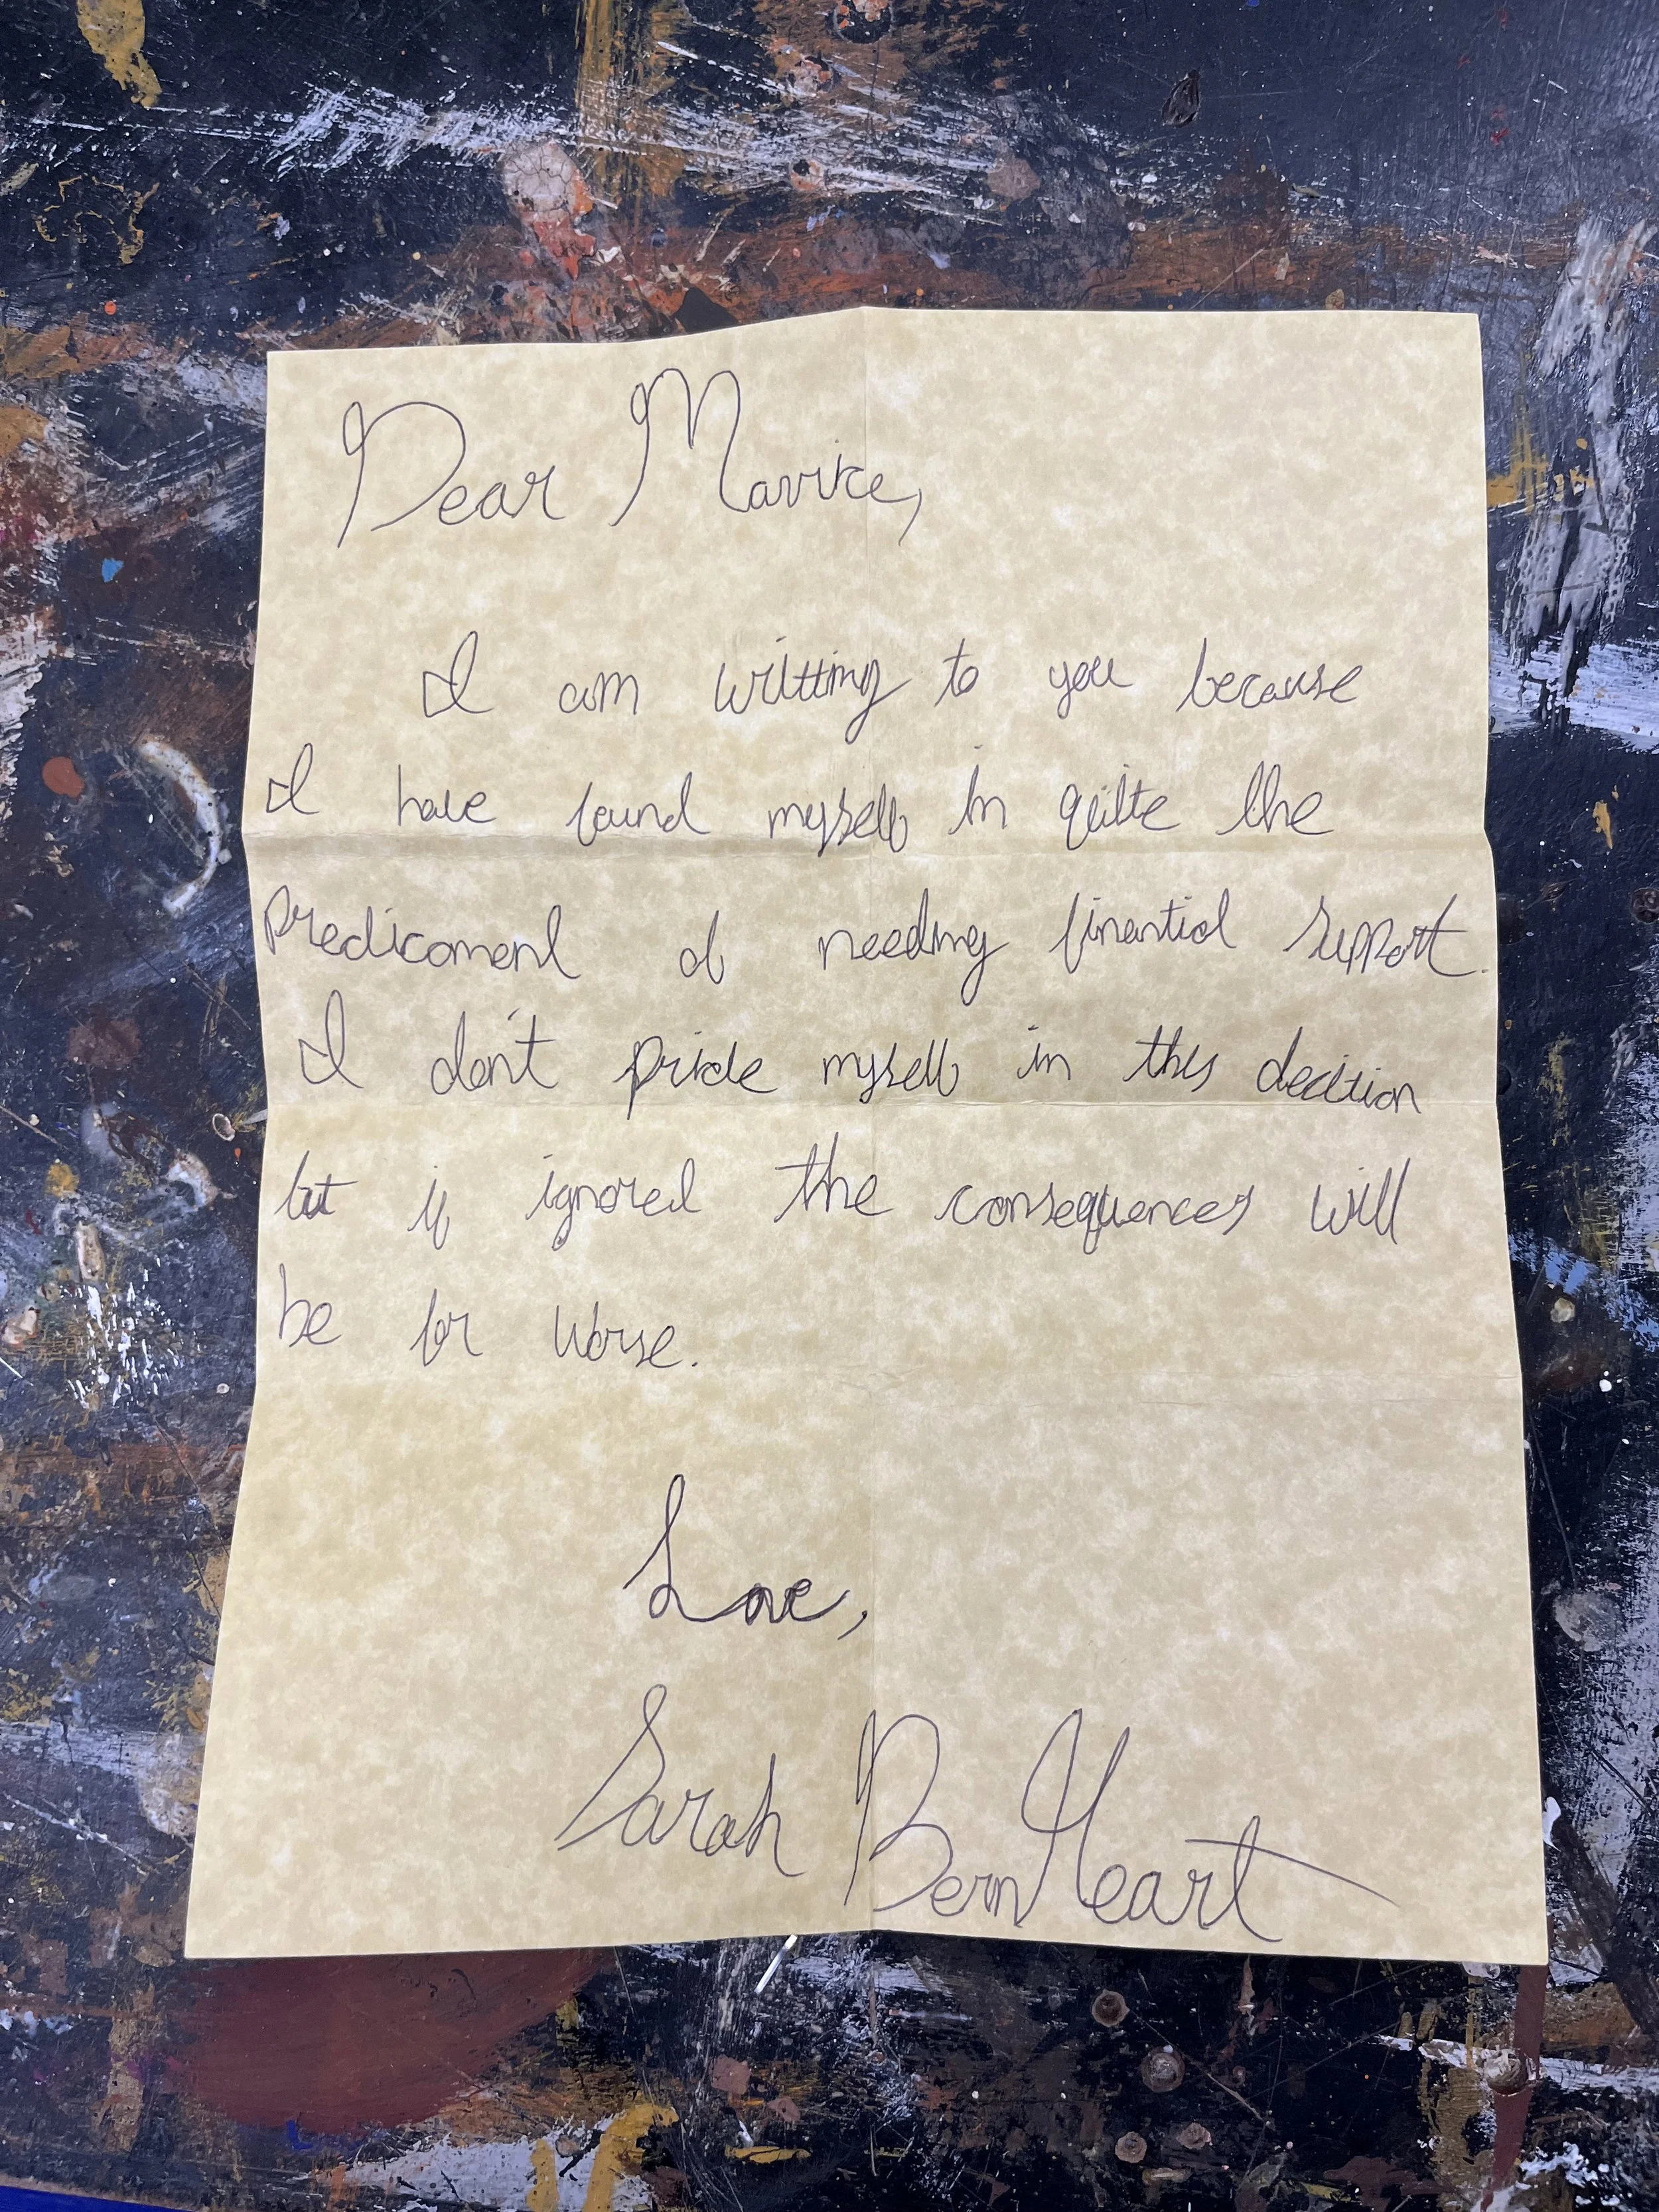 Dear Maurice,
I am writting to you because
I have found myself in quite the
predicament of needing finantial support.
I don't pride myself in this decition
but if ignored the consequences will
be far worse.
Love,
Sarah BernHeart